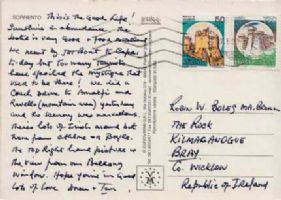 SORRENTO This is the Good Life!
Sunshine in abundance. The
hotel is very Good + food excellent
we went by Jet Boat to Capri
to-day but too many tourists
have spoiled the mystique that
used to be there! We did a
Coach Drive to Amalfi and
Ravello (mountain way) yesterday
and the scenery was marvellous
There lots of Irish around but
here from
The top Right hand picture is
the view from our Balcony
Window. Hope you're in Good
Lots of Love
50
ROBIN W. BOLES
THE ROCK
KILMACANOGUE
BRAY
Co. WICKLOW
Republic of Ireland